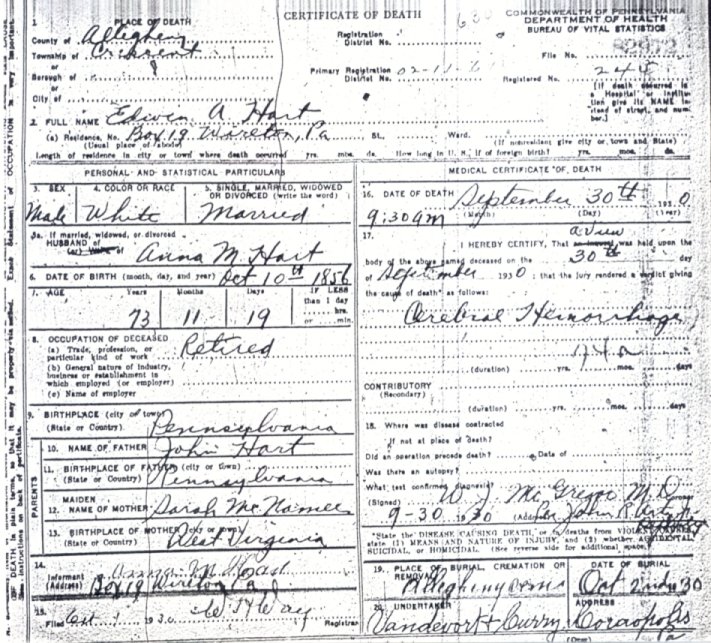 CERTIFICATE OF DEATH
COMMONWEALTH OF PENNSYLVANIA
DEPARTMENT OF HEALTH
BUREAU OF VITAL STATISTICS
1 PLACE OF DEATH
County of Allegheny
Township of Crescent
or
Borough of
or
City of
Registration District No.
Primary Registration District No. 02-11-6
File No.
Registered No. 245
[If death occurred in a Hospital or Institution give its NAME instead of street, and number.]
2. FULL NAME Edwin A Hart
(a) Residence, No. Box 19 Wireton, Pa St., Ward.
(Usual place of abode) (If nonresident give city or town and State)
Length of residence in city or town where death occurred yrs. mos. ds. How long in U. S., if of foreign birth? yrs. mos. ds.
PERSONAL AND STATISTICAL PARTICULARS
3. SEX 4. COLOR OR RACE 5. SINGLE, MARRIED, WIDOWED OR DIVORCED (write the word)
Male White Married
5a. If married, widowed, or divorced
HUSBAND of
(or) WIFE of Anna M Hart
6. DATE OF BIRTH (month, day, and year) Oct 10th 1856
7. AGE Years Months Days IF LESS than 1 day
73 11 19 hrs. or min.
8. OCCUPATION OF DECEASED
(a) Trade, profession, or particular kind of work Retired
(b) General nature of industry, business or establishment in which employed (or employer)
(c) Name of employer
9. BIRTHPLACE (city or town)
(State or Country) Pennsylvania
PARENTS
10. NAME OF FATHER John Hart
11. BIRTHPLACE OF FATHER (city or town)
(State or Country) Pennsylvania
12. MAIDEN NAME OF MOTHER Sarah McNamee
13. BIRTHPLACE OF MOTHER (city or town)
(State or Country) West Virginia
14.
Informant Anna M Hart
(Address) Box 19 Wireton Pa
15.
Filed Oct 1 1930 Registrar
MEDICAL CERTIFICATE OF DEATH
16. DATE OF DEATH September 30th 1930
9:30 am (Month) (Day) (Year)
17. a View
I HEREBY CERTIFY, That an inquest was held upon the
body of the above named deceased on the 30th day
of September 1930; that the jury rendered a verdict giving
the cause of death* as follows:
Cerebral Hemorrhage
(duration) yrs. mos. days
CONTRIBUTORY
(Secondary)
(duration) yrs. mos. ds.
18. Where was disease contracted
if not at place of death?
Did an operation precede death? Date of
Was there an autopsy?
What test confirmed diagnosis?
(Signed) W. J. McGregor M.D.
9-30 1930 (Address)
*State the DISEASE CAUSING DEATH, or in deaths from VIOLENT CAUSES, state (1) MEANS AND NATURE OF INJURY, and (2) whether ACCIDENTAL, SUICIDAL, or HOMICIDAL. (See reverse side for additional space.)
19. PLACE OF BURIAL, CREMATION OR REMOVAL DATE OF BURIAL
Oct 2nd 1930
20. UNDERTAKER ADDRESS
Vandevort & Curry, Coraopolis Pa